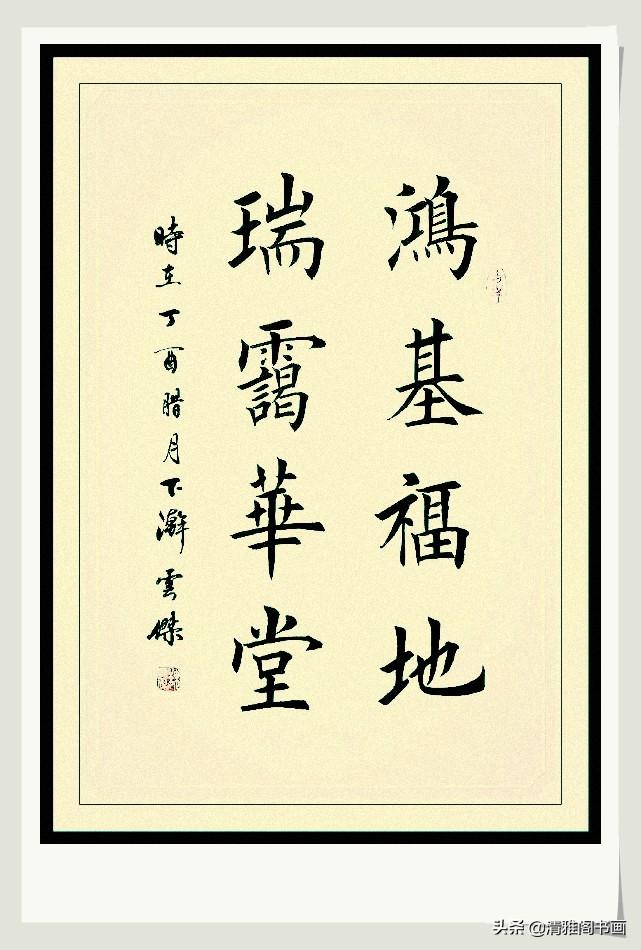 鴻基福地
瑞靄華堂
時在丁酉腊月下澣雲傑
头条 @清雅阁书画